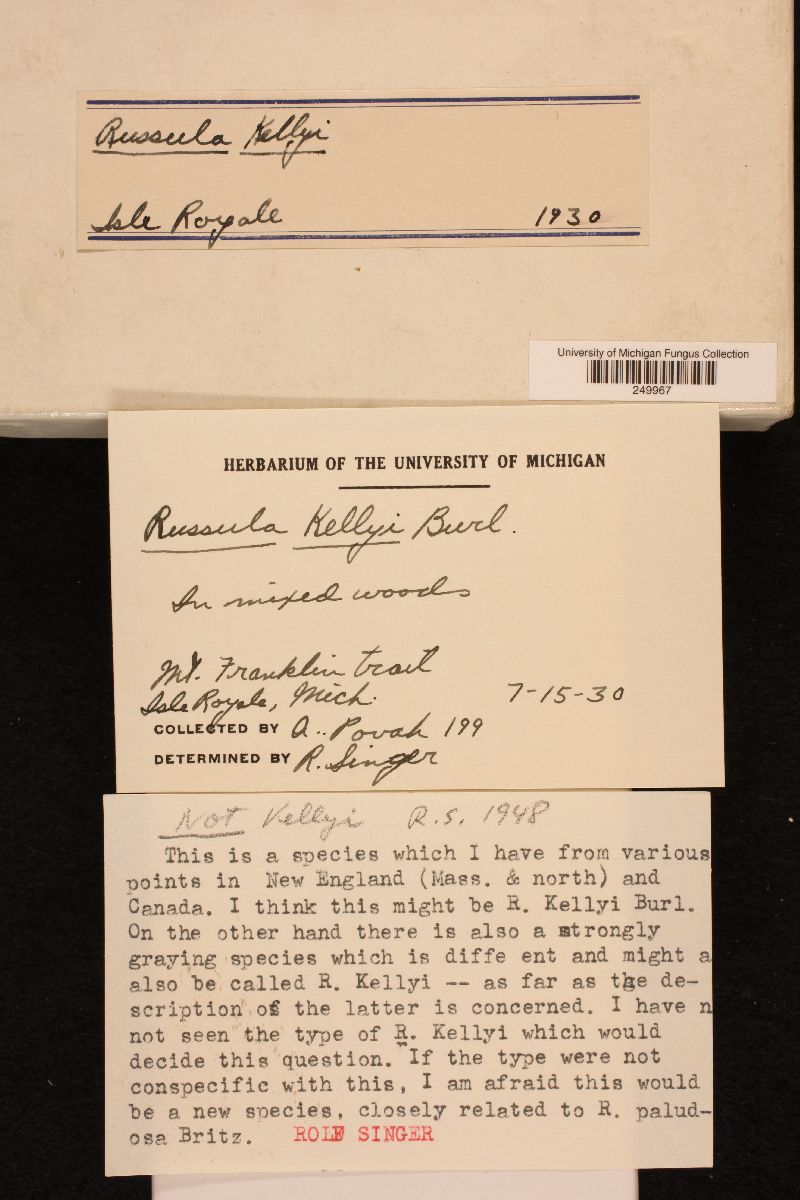 Russula Kellyi
Isle Royale 1930
University of Michigan Fungus Collection
249967
HERBARIUM OF THE UNIVERSITY OF MICHIGAN
Russula Kellyi Burl.
In mixed woods
Mt. Franklin trail
Isle Royale, Mich. 7-15-30
COLLECTED BY A.. Povah 199
DETERMINED BY R. Singer
Not Kellyi R.S. 1948
This is a species which I have from various
points in New England (Mass. & north) and
Canada. I think this might be R. Kellyi Burl.
On the other hand there is also a strongly
graying species which is diffe ent and might a
also be called R. Kellyi -- as far as the de-
scription of the latter is concerned. I have n
not seen the type of R. Kellyi which would
decide this question. If the type were not
conspecific with this, I am afraid this would
be a new species, closely related to R. palud-
osa Britz. ROLF SINGER